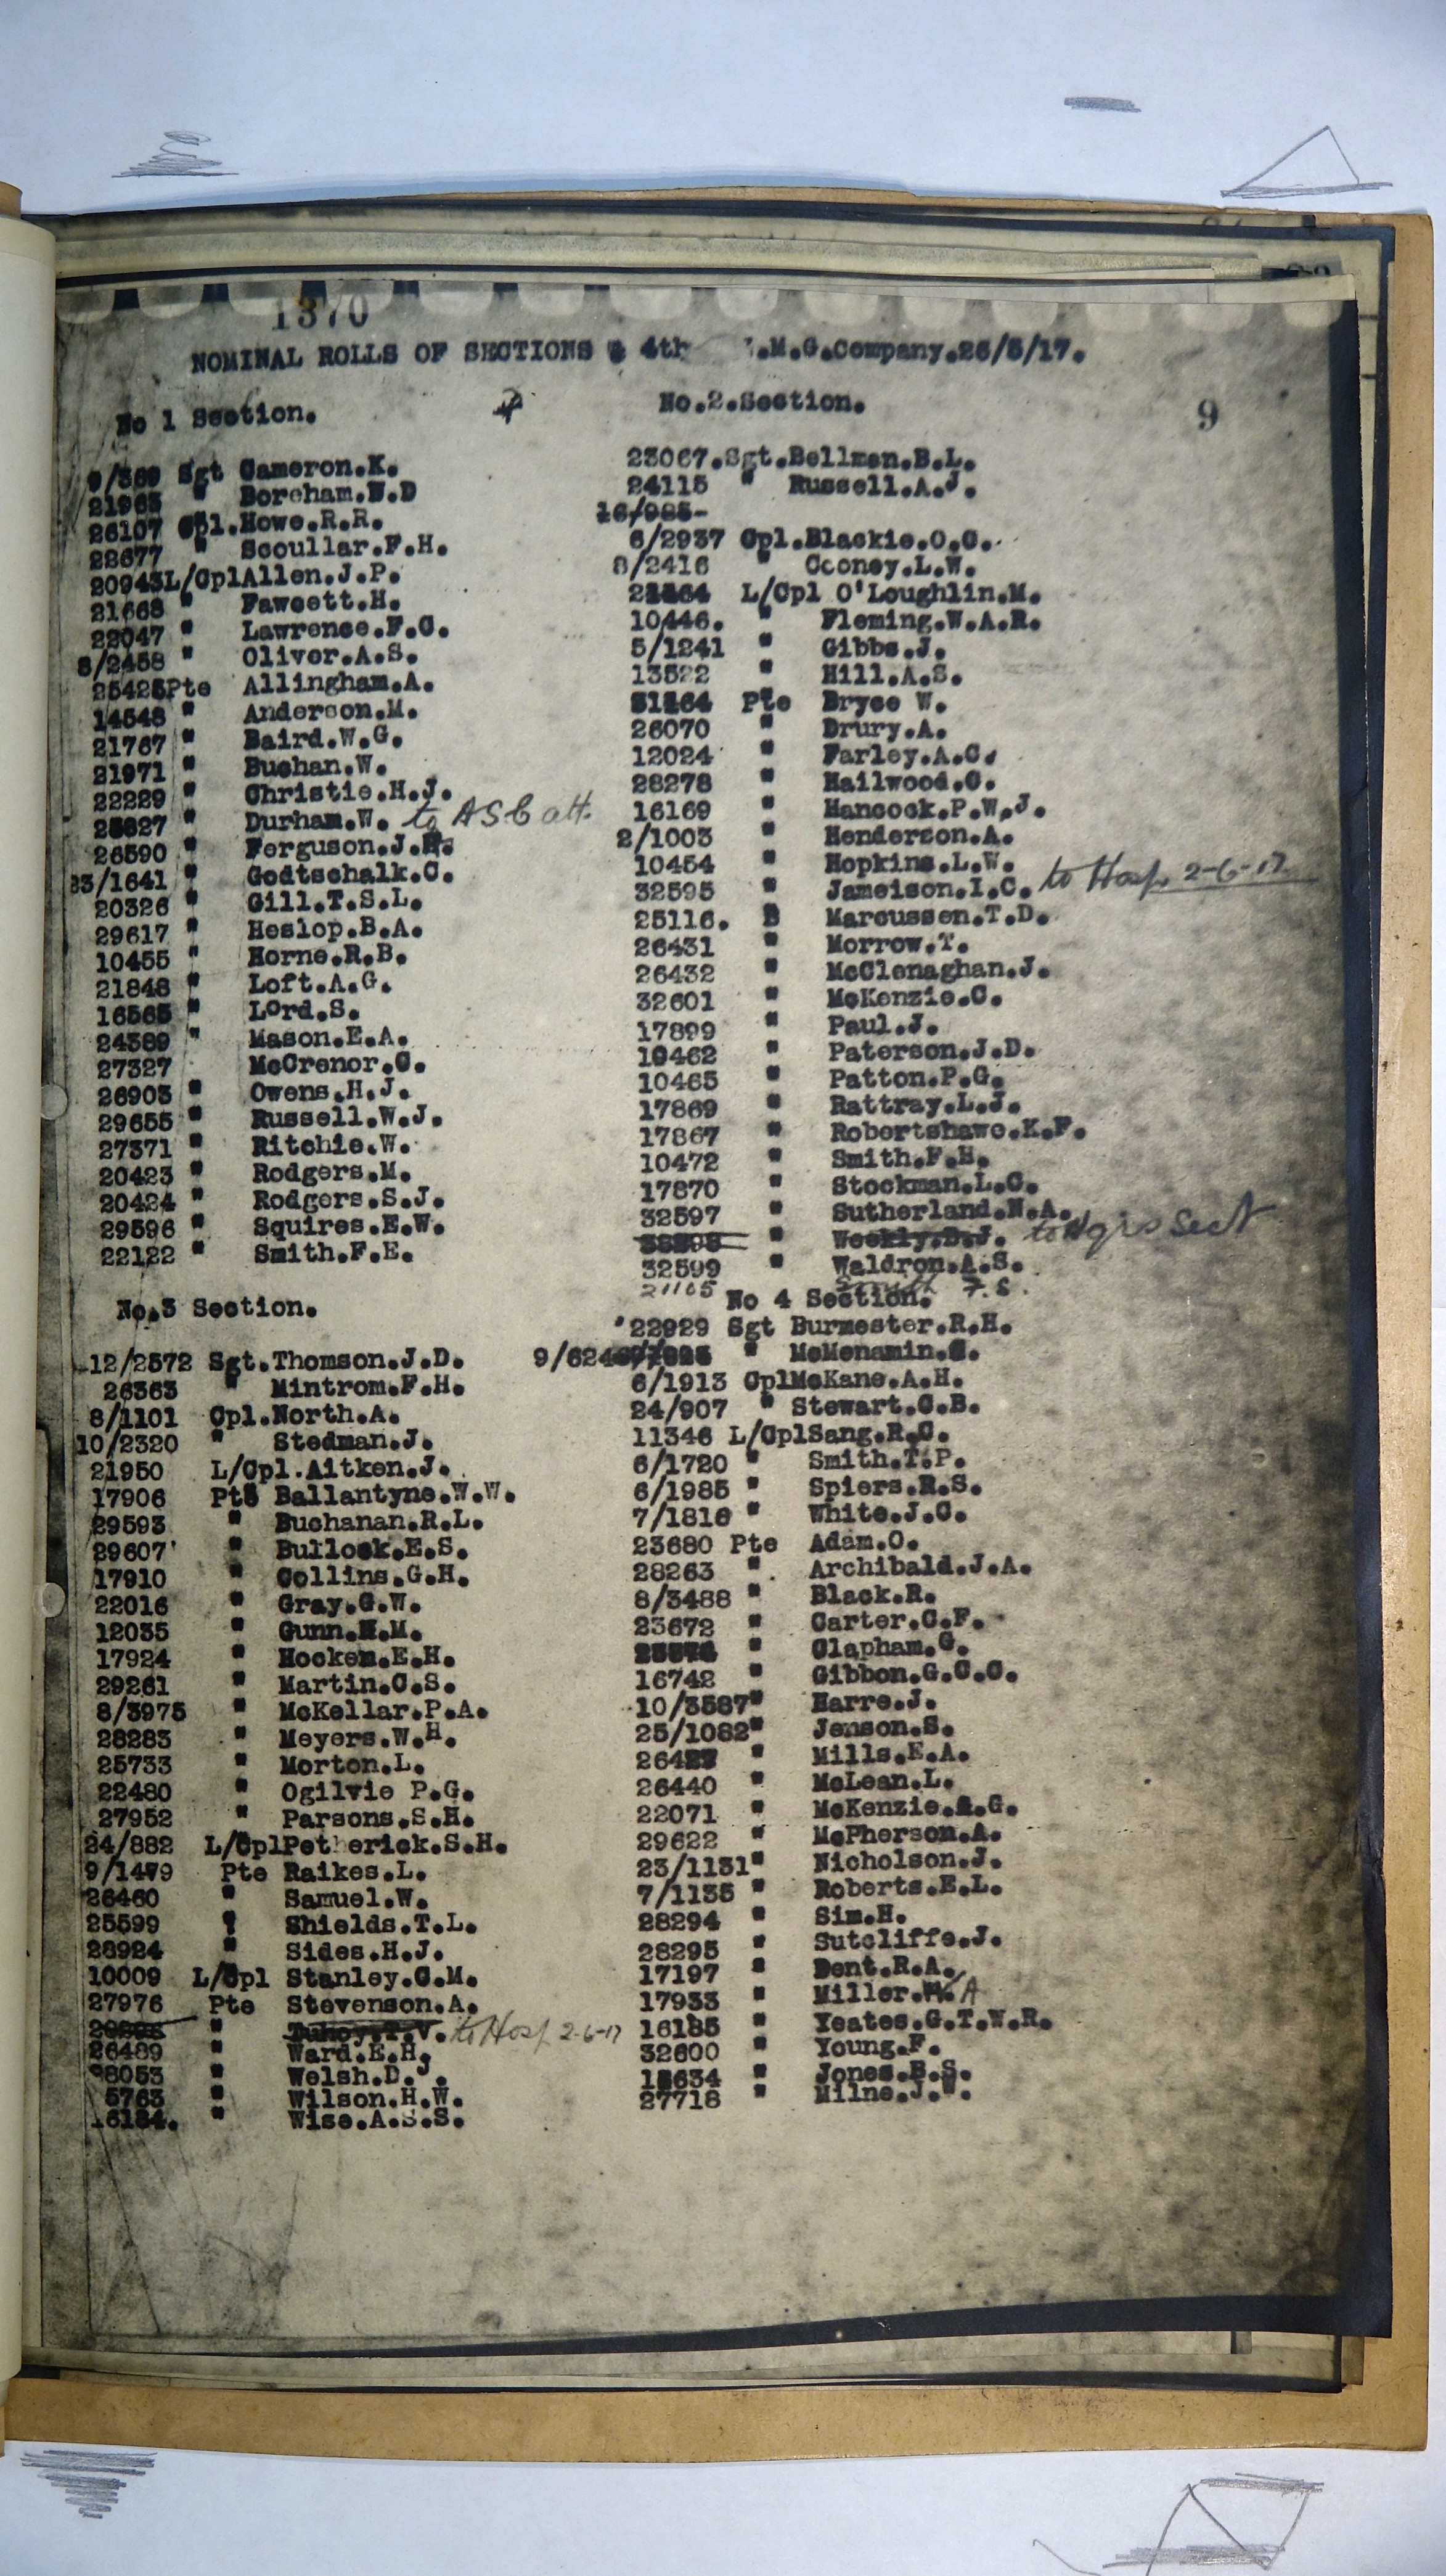 1370
NOMINAL ROLLS OF SECTIONS 4th .M.G.Company.26/5/17.
9
No 1 Section.
9/369 Sgt Cameron.K.
21963 " Boreham.N.D
26107 Cpl.Howe.R.R.
22677 " Scoullar.F.H.
20943L/CplAllen.J.P.
21668 " Fawcett.H.
22047 " Lawrence.F.C.
8/2458 " Oliver.A.S.
25425Pte Allingham.A.
14548 " Anderson.M.
21767 " Baird.W.G.
21971 " Buchan.W.
22229 " Christie.H.J.
" Durham.W. to ASC att.
26590 " Ferguson.J.
23/1641 " Godtschalk.C.
20326 " Gill.T.S.L.
29617 " Heslop.B.A.
10455 " Horne.R.B.
21848 " Loft.A.G.
16565 " Lord.S.
24389 " Mason.E.A.
27327 McCrenor.C.
26903 " Owens.H.J.
29655 " Russell.W.J.
27371 " Ritchie.W.
20423 " Rodgers.M.
20424 " Rodgers.S.J.
29596 " Squires.E.W.
22122 " Smith.F.E.
No.2.Section.
23067.Sgt.Bellman.B.L.
24115 " Russell.A.J.
16/985-
6/2937 Cpl.Blackie.O.C.
8/2416 " Cooney.L.W.
L/Cpl O'Loughlin.M.
10446. " Fleming.W.A.R.
5/1241 " Gibbs.J.
13522 " Hill.A.S.
Pte Bryce W.
26070 " Drury.A.
12024 " Farley.A.C.
28278 " Hailwood.C.
16169 " Hancock.P.W.J.
2/1003 " Henderson.A.
10454 " Hopkins.L.W.
32595 " Jameison.I.C. to Hosp 2-6-17
25116. " Marcussen.T.D.
26431 " Morrow.T.
26432 " McClenaghan.J.
32601 " McKenzie.C.
17899 " Paul.J.
10462 " Paterson.J.D.
10465 " Patton.P.G.
17869 " Rattray.L.J.
17867 " Robertshawe.K.F.
10472 " Smith.F.H.
17870 " Stockman.L.C.
32597 " Sutherland.N.A.
" Weekly.D.J. to Hqrs Sect
32599 " Waldron.A.S.
21105 Smith F.S.
No.3 Section.
12/2572 Sgt.Thomson.J.D.
26363 " Mintrom.F.H.
8/1101 Cpl.North.A.
10/2320 " Stedman.J.
21950 L/Cpl.Aitken.J.
17906 Pte Ballantyne.W.W.
29593 " Buchanan.R.L.
29607 " Bullock.E.S.
17910 " Collins.G.H.
22016 " Gray.G.W.
12035 " Gunn.H.M.
17924 " Hocken.E.H.
29261 " Martin.C.S.
8/3975 " McKellar.P.A.
28283 " Meyers.W.H.
25733 " Morton.L.
22480 " Ogilvie P.G.
27952 " Parsons.S.H.
24/882 L/CplPetherick.S.H.
9/1479 Pte Raikes.L.
26460 " Samuel.W.
25599 " Shields.T.L.
28924 " Sides.H.J.
10009 L/Cpl Stanley.C.M.
27976 Pte Stevenson.A.
" Tuhoy.T.V. to Hosp 2-6-17
26489 " Ward.E.H.
28053 " Welsh.D.J.
5763 " Wilson.H.W.
16184. " Wise.A.S.S.
No 4 Section.
22929 Sgt Burmester.R.H.
9/624 " McMenamin.
6/1913 CplMcKane.A.H.
24/907 " Stewart.C.B.
11346 L/CplSang.R.C.
6/1720 " Smith.T.P.
6/1985 " Spiers.R.S.
7/1816 " White.J.C.
23680 Pte Adam.O.
28263 " Archibald.J.A.
8/3488 " Black.R.
23672 " Carter.C.F.
" Clapham.G.
16742 " Gibbon.G.C.C.
10/3587" Harre.J.
25/1082" Jenson.S.
26427 " Mills.E.A.
26440 " McLean.L.
22071 " McKenzie. .G.
29622 " McPherson.A.
23/1131" Nicholson.J.
7/1135 " Roberts.E.L.
28294 " Sim.H.
28295 " Sutcliffe.J.
17197 " Dent.R.A.
17933 " Miller. A
16185 " Yeates.G.T.W.R.
32600 " Young.F.
" Jones.B.S.
27718 " Milne.J.W.